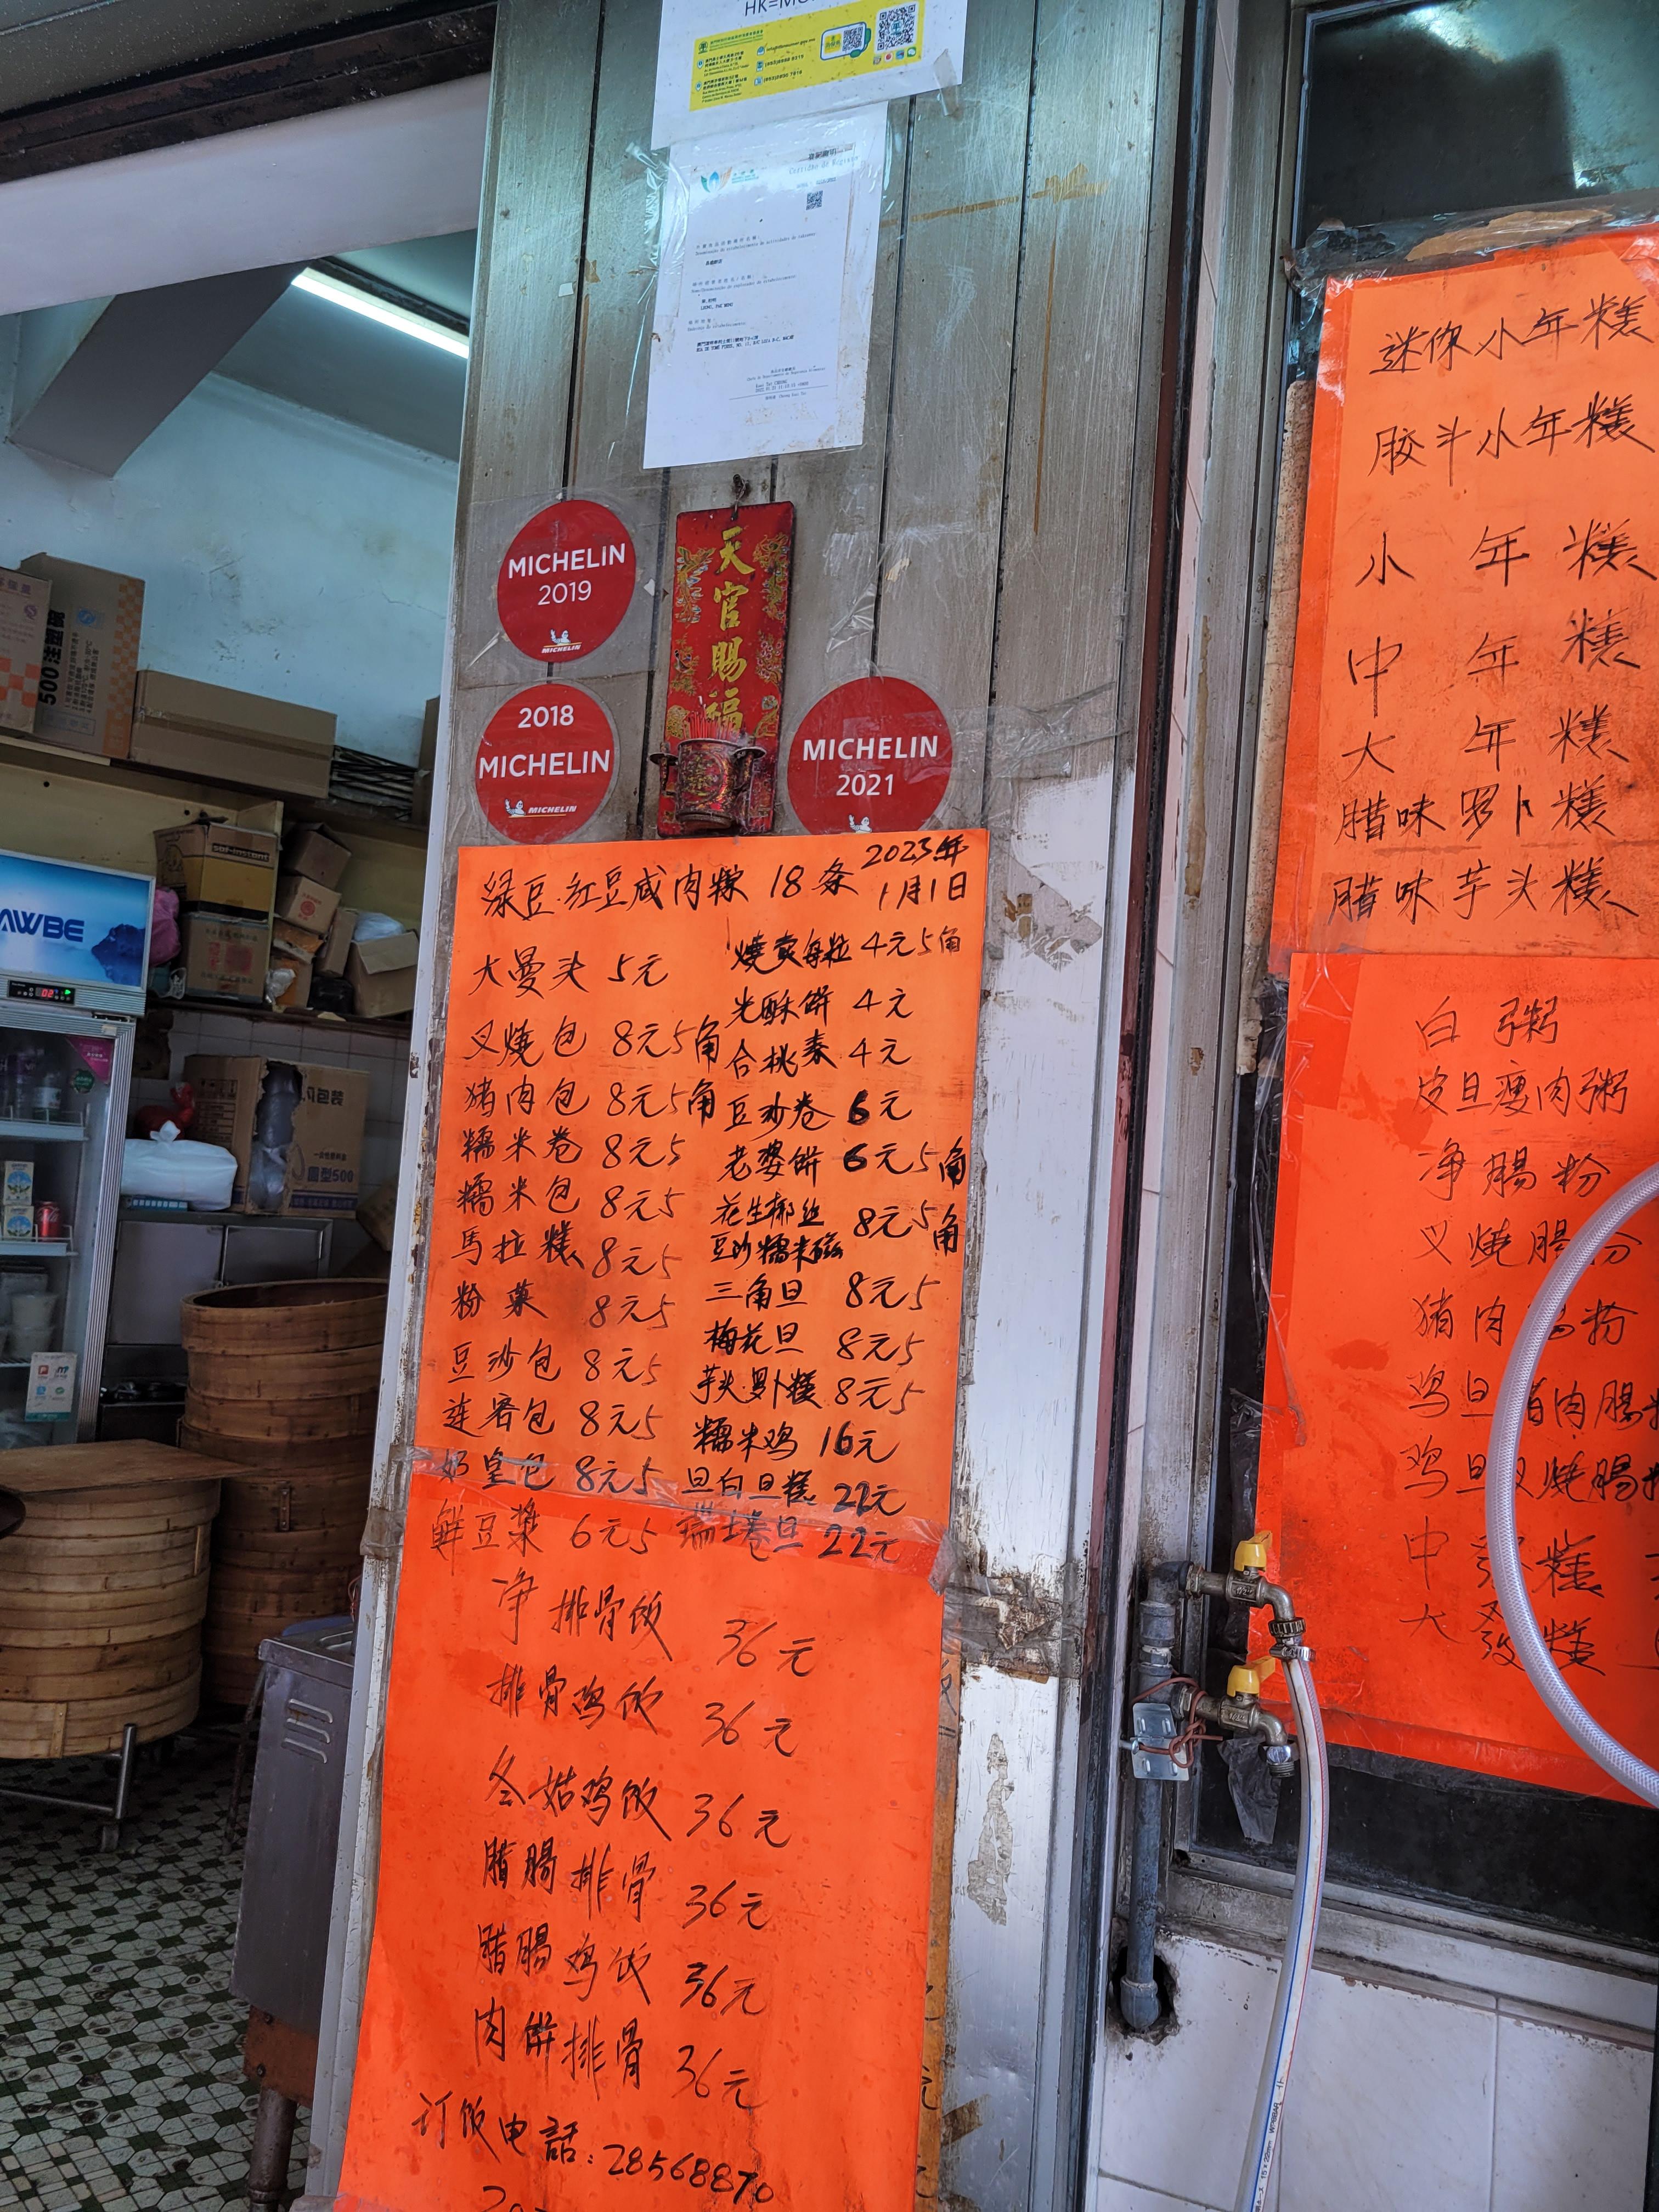 HK=MO
MICHELIN
2019
MICHELIN
2018
MICHELIN
MICHELIN
MICHELIN
2021
天官賜福
绿豆.红豆咸肉粽 18条
2023年
1月1日
大曼头 5元
叉燒包 8元5角
猪肉包 8元5角
糯米卷 8元5
糯米包 8元5
馬拉糕 8元5
粉菓 8元5
豆沙包 8元5
连容包 8元5
奶皇包 8元5
鲜豆漿 6元5
燒卖每粒 4元5角
光酥餅 4元
合桃素 4元
豆沙卷 6元
老婆餅 6元5角
花生椰丝
豆沙糯米磁 8元5角
三角旦 8元5
梅花旦 8元5
芋头.罗卜糕 8元5
糯米鸡 16元
旦白旦糕 22元
瑞士卷旦 22元
净排骨饭 36元
排骨鸡饭 36元
冬菇鸡饭 36元
腊腸排骨 36元
腊腸鸡饭 36元
肉餅排骨 36元
订饭电話:28568870
迷你小年糕
胶斗小年糕
小年糕
中年糕
大年糕
腊味罗卜糕
腊味芋头糕
白粥
皮旦瘦肉粥
净腸粉
叉燒腸粉
猪肉腸粉
鸡旦猪肉腸粉
鸡旦叉燒腸粉
中發糕
大發糕
AWBE
500注塑碗
saf-instant
圆型500